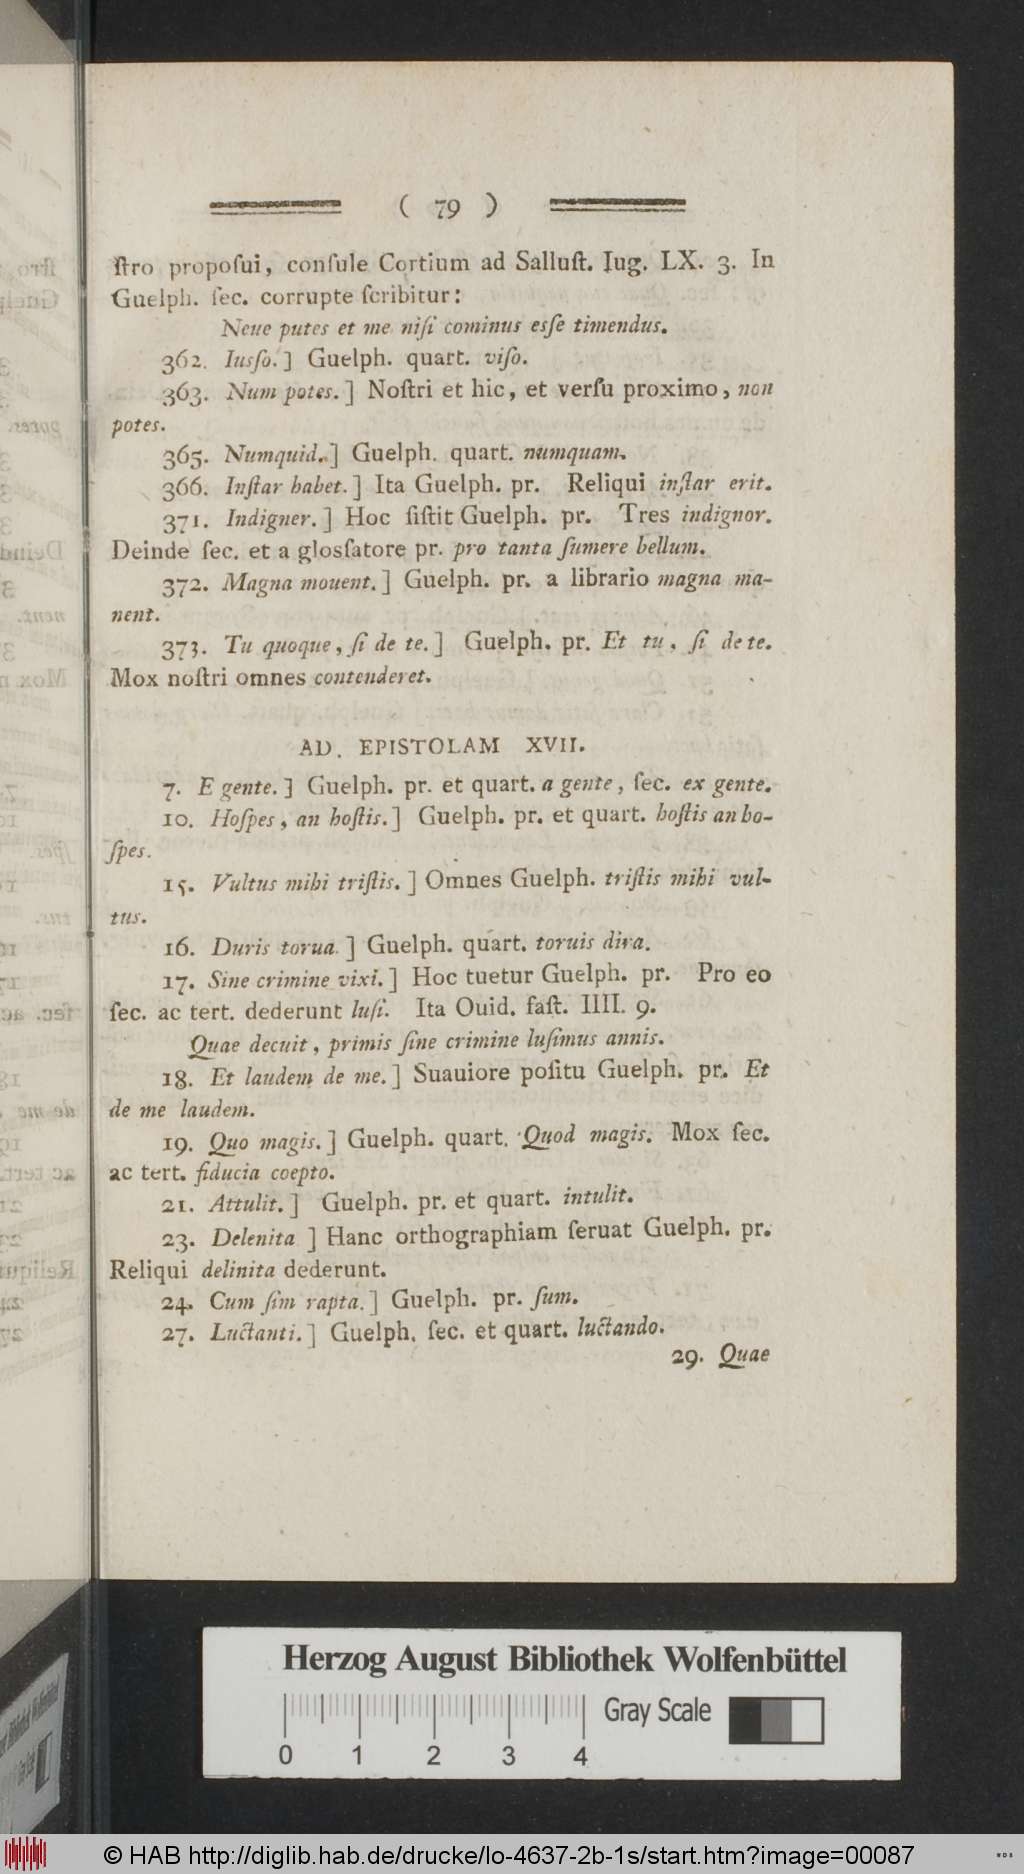 ( 79 )
ſtro propoſui, conſule Cortium ad Salluſt. Iug. LX. 3. In
Guelph. ſec. corrupte ſcribitur:
Neue putes et me niſi cominus eſſe timendus.
362. Iuſſo.] Guelph. quart. viſo.
363. Num potes.] Noſtri et hic, et verſu proximo, non
potes.
365. Numquid.] Guelph. quart. numquam.
366. Inſtar habet.] Ita Guelph. pr. Reliqui inſtar erit.
371. Indigner.] Hoc ſiſtit Guelph. pr. Tres indignor.
Deinde ſec. et a gloſſatore pr. pro tanta ſumere bellum.
372. Magna mouent.] Guelph. pr. a librario magna ma-
nent.
373. Tu quoque, ſi de te.] Guelph. pr. Et tu, ſi de te.
Mox noſtri omnes contenderet.
AD. EPISTOLAM XVII.
7. E gente.] Guelph. pr. et quart. a gente, ſec. ex gente.
10. Hoſpes, an hoſtis.] Guelph. pr. et quart. hoſtis an ho-
ſpes.
15. Vultus mihi triſtis.] Omnes Guelph. triſtis mihi vul-
tus.
16. Duris torua.] Guelph. quart. toruis dira.
17. Sine crimine vixi.] Hoc tuetur Guelph. pr. Pro eo
ſec. ac tert. dederunt luſi. Ita Ouid. faſt. IIII. 9.
Quae decuit, primis ſine crimine luſimus annis.
18. Et laudem de me.] Suauiore poſitu Guelph. pr. Et
de me laudem.
19. Quo magis.] Guelph. quart. Quod magis. Mox ſec.
ac tert. fiducia coepto.
21. Attulit.] Guelph. pr. et quart. intulit.
23. Delenita ] Hanc orthographiam ſeruat Guelph. pr.
Reliqui delinita dederunt.
24. Cum ſim rapta.] Guelph. pr. ſum.
27. Luctanti.] Guelph. ſec. et quart. luctando.
29. Quae
Herzog August Bibliothek Wolfenbüttel
Gray Scale
0 1 2 3 4
© HAB http://diglib.hab.de/drucke/lo-4637-2b-1s/start.htm?image=00087